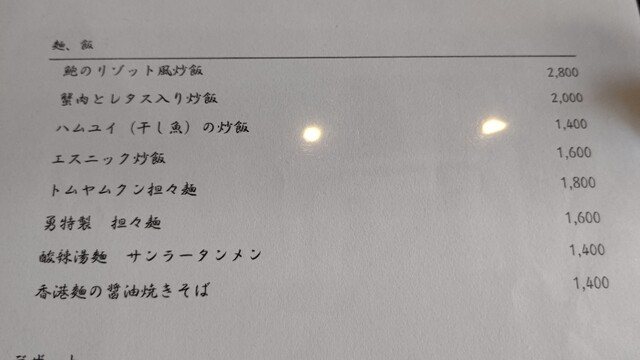 麺、飯
鮑のリゾット風炒飯 2,800
蟹肉とレタス入り炒飯 2,000
ハムユイ（干し魚）の炒飯 1,400
エスニック炒飯 1,600
トムヤムクン担々麺 1,800
勇特製　担々麺 1,600
酸辣湯麺　サンラータンメン 1,400
香港麺の醤油焼きそば 1,400